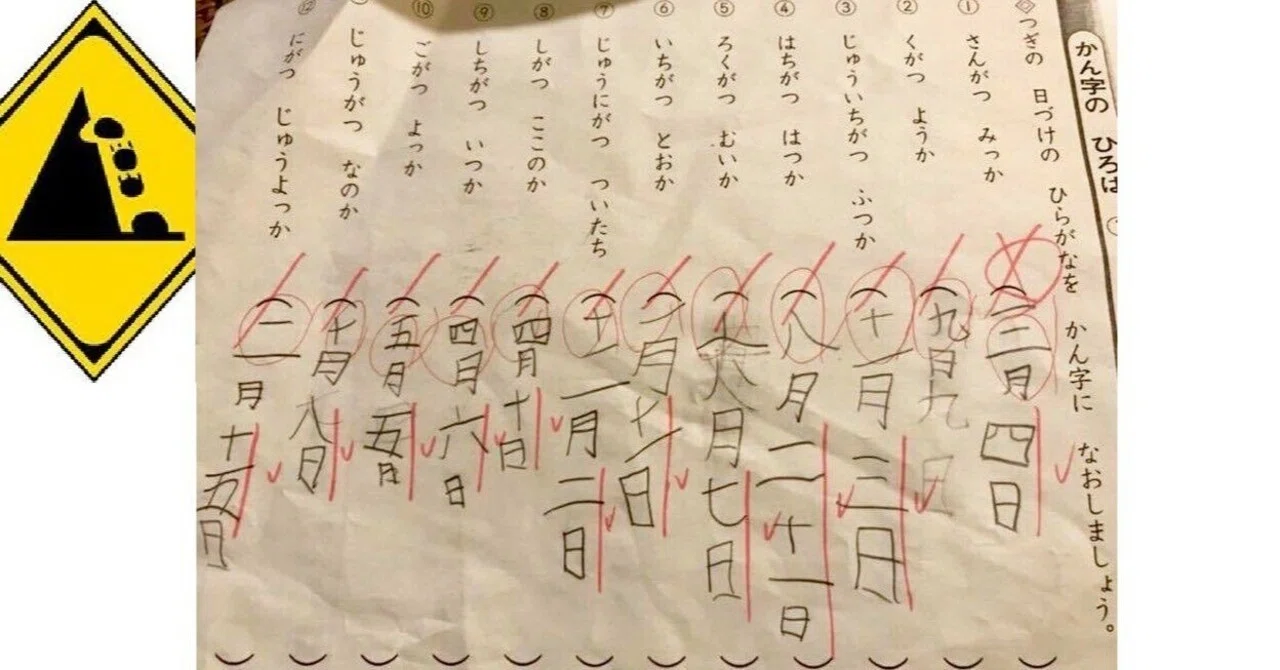 かん字の ひろば
◇つぎの 日づけの ひらがなを かん字に なおしましょう。
① さんがつ みっか (三月四日)
② くがつ ようか (九月九日)
③ じゅういちがつ ふつか (十一月三日)
④ はちがつ はつか (八月二十一日)
⑤ ろくがつ むいか (六月七日)
⑥ いちがつ とおか (一月十一日)
⑦ じゅうにがつ ついたち (十二月二日)
⑧ しがつ ここのか (四月十日)
⑨ しちがつ いつか (四月六日)
⑩ ごがつ よっか (五月五日)
じゅうがつ なのか (十月八日)
⑫ にがつ じゅうよっか (二月十五日)